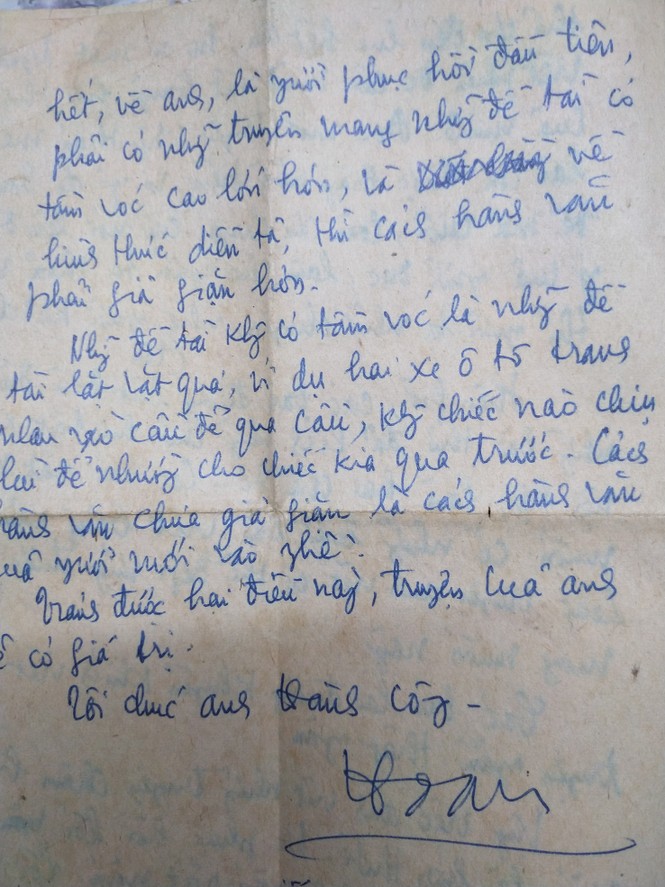 hết, về anh, là người phục hồi đầu tiên,
phải có nhg̃ truyện mang nhg̃ đề tài có
tầm vóc cao lớn hơn, và về
hình thức diễn tả, thì cách hành văn
phải già giặn hơn.
Nhg̃ đề tài khg̃ có tầm vóc là nhg̃ đề
tài lặt vặt quá, ví dụ hai xe ô tô tranh
nhau vào cầu để qua cầu, khg̃ chiếc nào chịu
lui để nhường cho chiếc kia qua trước. Cách
hành văn chưa già giặn là cách hành văn
của người mới vào nghề.
Tránh được hai điều này, truyện của anh
sẽ có giá trị.
Tôi chúc anh thành công -